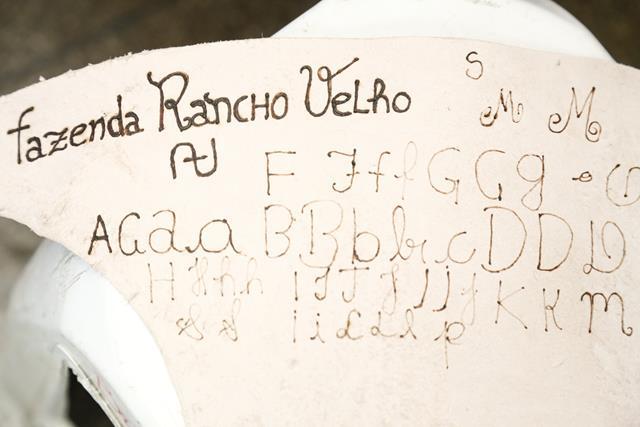 fazenda Rancho Velho
S M M
AJ F F f f G G g
A G a a B B b b c D D D
H H h h I J J J J j j K K m
i i L L l p